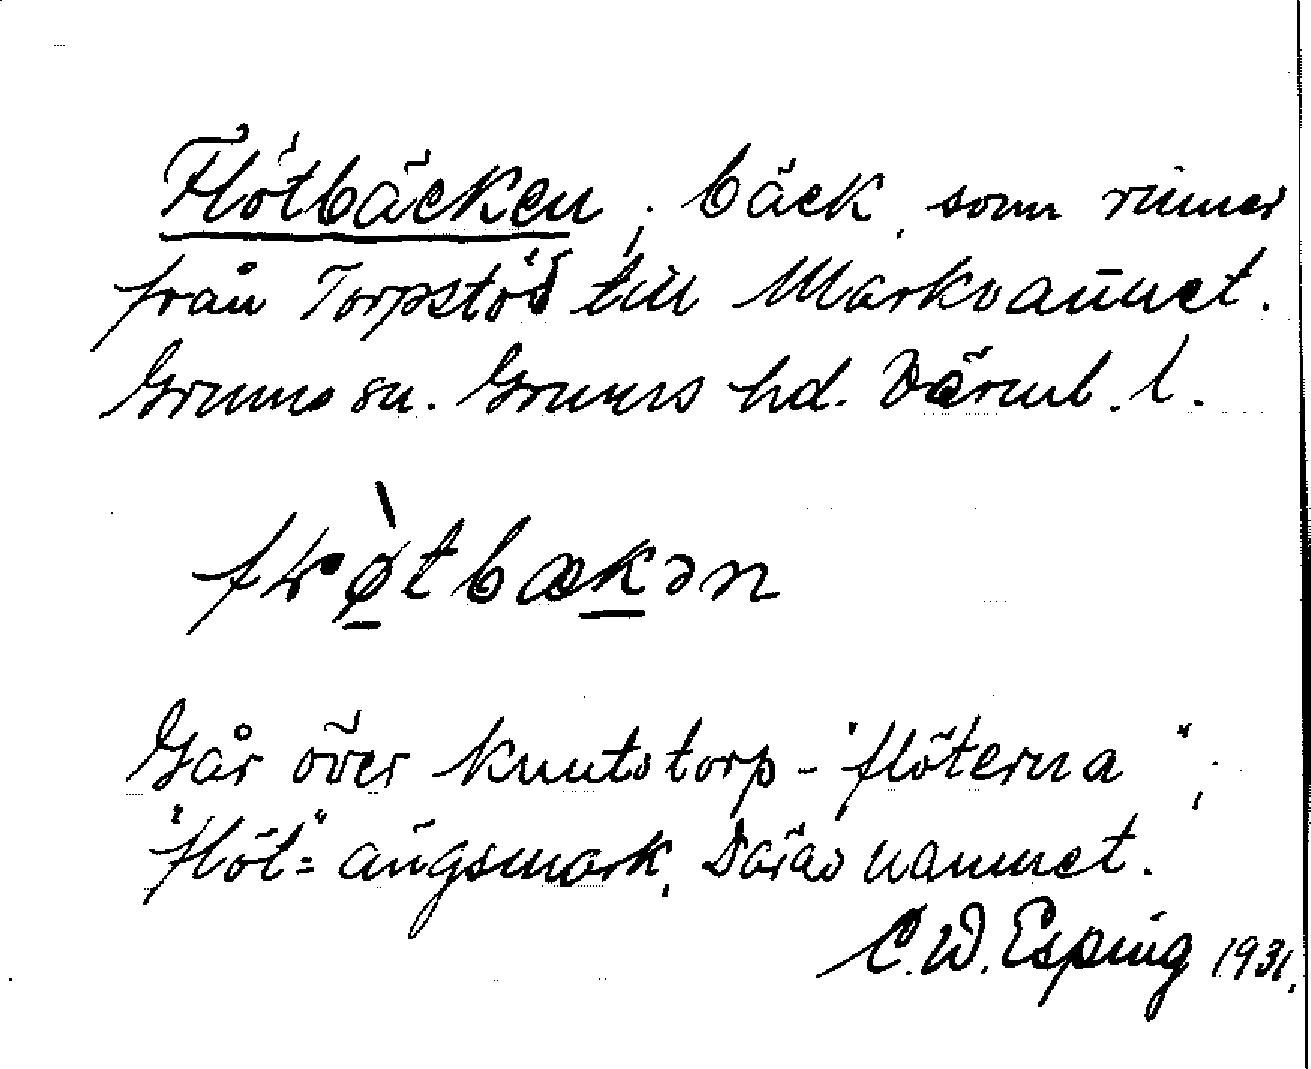 Flötbäcken, bäck, som rinner
från Torpstöd till Markvannet.
Grums sn. Grums hd. Värml. l.
fɽø̀tbækən
Går över Knutstorp-"flöterna",
"flöt"= ängsmark, Därav namnet.
C. W. Esping 1931.